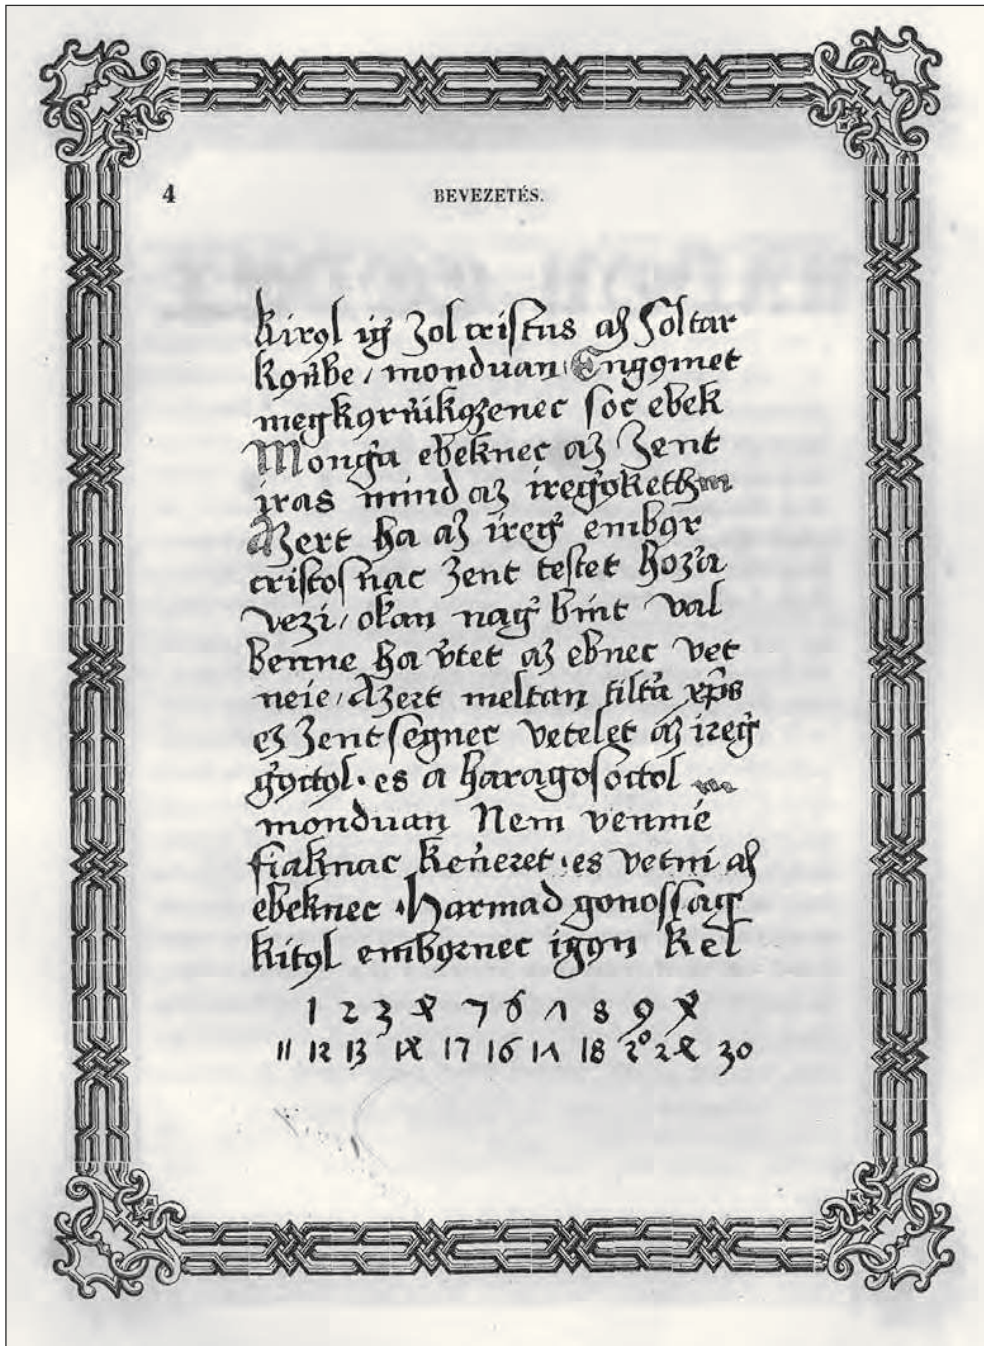 4
BEVEZETÉS.
kirọl ig̓ zol cristus aȥ soltar
kọn̓be / monduan Engọmet
megkọrn̓ikọzenec soc ebek
Mong̓a ebeknec az zent
iras mind az ireg̓ọketh
Azert ha az ireg̓ embọr
cristosnac zent testet hoz̓a
vezi / okan nag̓ bint val
benne ha v̓tet az ebnec vet
neie / Azert meltan tilt̓a xp̄s
ez zentsegnec vetelet az ireg̓
g̓ọctọl · es a haragosoctol
monduan Nem vennie
fiaknac ken̓eret · es vetni aȥ
ebeknec · Harmad gonossag
kitọl embọrnec igọn kel
1 2 3 4 5 6 7 8 9 X
11 12 13 14 15 16 17 18 20 24 30